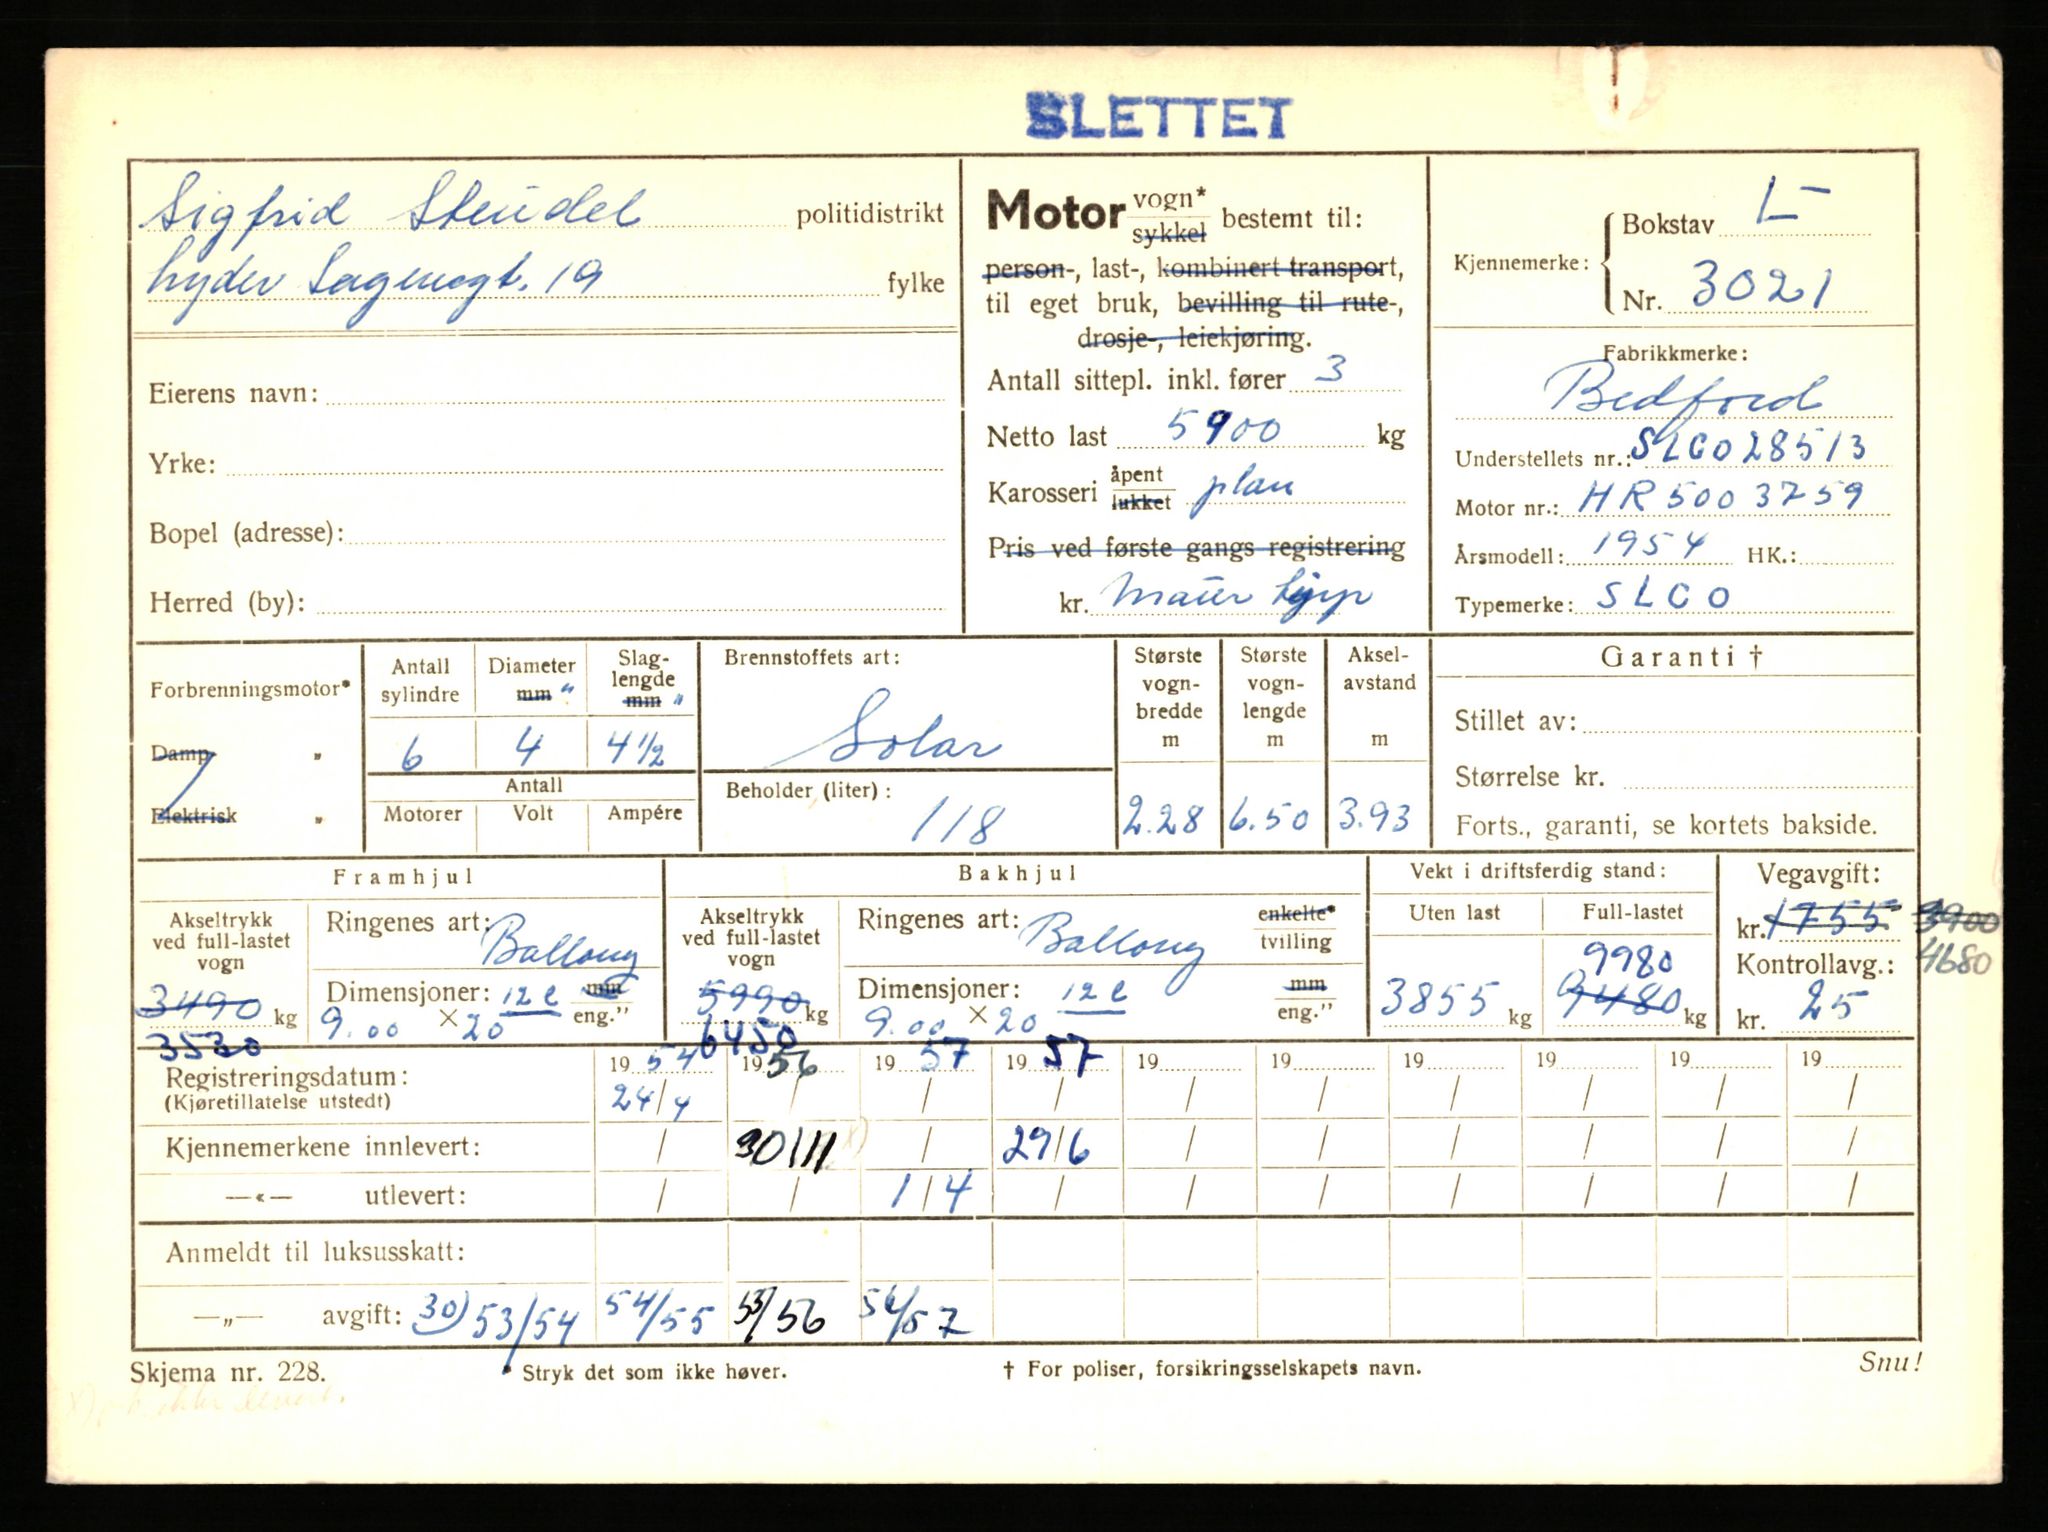 SLETTET
Sigfrid Steudel politidistrikt
Lyder Sagensgt. 19 fylke
Eierens navn:
Yrke:
Bopel (adresse):
Herred (by):
Motor vogn* sykkel bestemt til:
person-, last-, kombinert transport,
til eget bruk, bevilling til rute-,
drosje-, leiekjøring.
Antall sittepl. inkl. fører 3
Netto last 5900 kg
Karosseri åpent lukket plan
Pris ved første gangs registrering
kr.
Kjennemerke: Bokstav L-
Nr. 3021
Fabrikkmerke:
Bedford
Understellets nr.: SLCO28513
Motor nr.: HR5003759
Årsmodell: 1954 HK.:
Typemerke: SLCO
Forbrenningsmotor*
Damp "
Elektrisk "
Antall sylindre
6
Diameter mm "
4
Slag-lengde mm "
4 1/2
Antall
Motorer Volt Ampére
Brennstoffets art:
Solar
Beholder (liter):
118
Største vogn-bredde m
2.28
Største vogn-lengde m
6.50
Aksel-avstand m
3.93
Garanti †
Stillet av:
Størrelse kr.
Forts., garanti, se kortets bakside.
Framhjul
Akseltrykk ved full-lastet vogn
3490 kg
3530
Ringenes art: Ballong
Dimensjoner: 12 l mm eng."
9.00 × 20
Bakhjul
Akseltrykk ved full-lastet vogn
5990 kg
6450
Ringenes art: Ballong enkelte* tvilling
Dimensjoner: 12 l mm eng."
9.00 × 20
Vekt i driftsferdig stand:
Uten last Full-lastet
9980
3855 kg 9480 kg
Vegavgift:
kr. 1755 3900
Kontrollavg.: 4680
kr. 25
Registreringsdatum: 19 54 19 56 19 57 19 57 19 19 19 19 19 19
(Kjøretillatelse utstedt) 24/4 / / / / / / / / /
Kjennemerkene innlevert: / 30/11 x) / 29/6 / / / / / /
—«— utlevert: / / 1/4 / / / / / / /
Anmeldt til luksusskatt:
—„— avgift: 30) 53/54 54/55 55/56 56/57
Skjema nr. 228. * Stryk det som ikke høver. † For poliser, forsikringsselskapets navn. Snu!